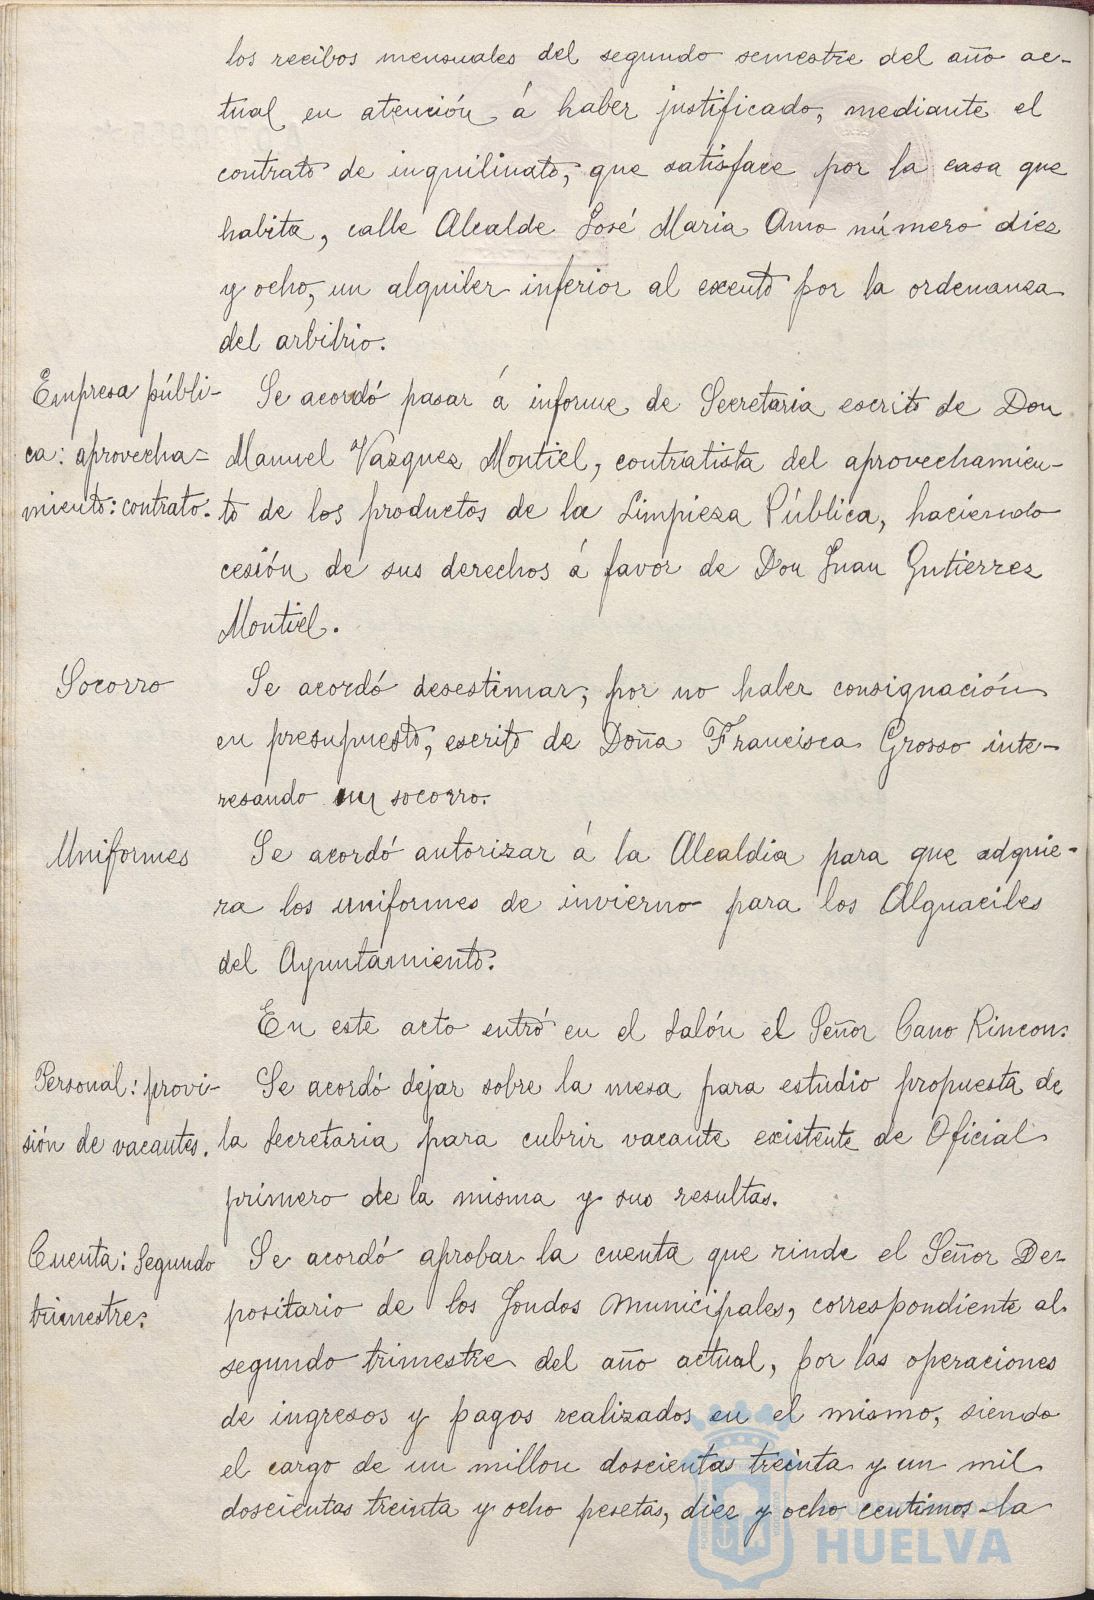 los recibos mensuales del segundo semestre del año ac-
tual en atención á haber justificado, mediante el
contrato de inquilinato, que satisface por la casa que
habita, calle Alcalde José Maria Amo número diez
y ocho, un alquiler inferior al exento por la ordenanza
del arbitrio.
Empresa públi-
ca: aprovecha=
miento: contrato.
Se acordó pasar á informe de Secretaria escrito de Don
Manuel Vazquez Montiel, contratista del aprovechamien-
to de los productos de la Limpieza Pública, haciendo
cesión de sus derechos á favor de Don Juan Gutierrez
Montiel.
Socorro
Se acordó desestimar, por no haber consignación
en presupuesto, escrito de Doña Francisca Grosso inte-
resando un socorro.
Uniformes
Se acordó autorizar á la Alcaldia para que adquie-
ra los uniformes de invierno para los Alguaciles
del Ayuntamiento.
En este acto entró en el Salón el Señor Cano Rincon.
Personal: provi-
sión de vacantes.
Se acordó dejar sobre la mesa para estudio propuesta de
la Secretaria para cubrir vacante existente de Oficial
primero de la misma y sus resultas.
Cuenta: Segundo
trimestre.
Se acordó aprobar la cuenta que rinde el Señor De-
positario de los fondos municipales, correspondiente al
segundo trimestre del año actual, por las operaciones
de ingresos y pagos realizados en el mismo, siendo
el cargo de un millon doscientas treinta y un mil
doscientas treinta y ocho pesetas, diez y ocho centimos la
HUELVA